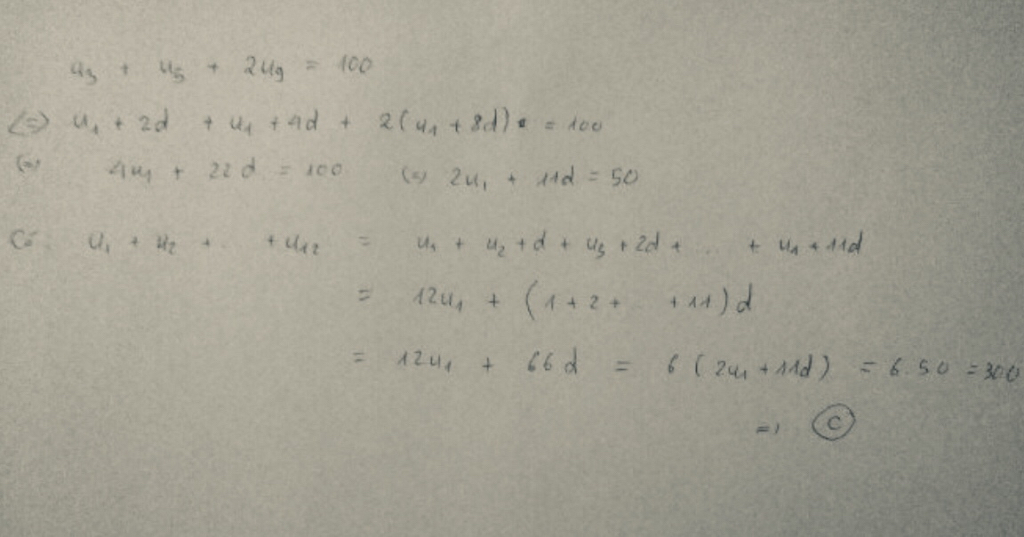 u₃ + u₅ + 2u₉ = 100
(=) u₁ + 2d + u₁ + 4d + 2(u₁ + 8d) = 100
(=) 4u₁ + 22d = 100 (=) 2u₁ + 11d = 50
Có: u₁ + u₂ + .. + u₁₂ = u₁ + u₂ + d + u₃ + 2d + ... + u₁ + 11d
= 12u₁ + (1 + 2 + .. + 11)d
= 12u₁ + 66d = 6(2u₁ + 11d) = 6.50 = 300
=) C